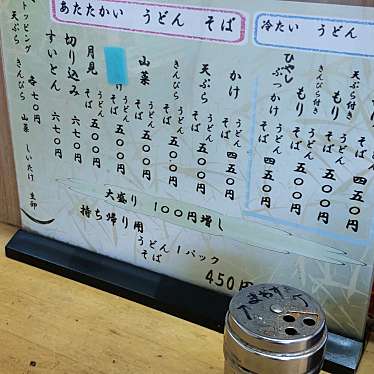 冷たい うどん そば
もり うどん そば
きんぴら付き もり うどん そば 五〇〇円
天ぷら付き もり うどん そば 五五〇円
ひやし ぶっかけ うどん そば 四五〇円
あたたかい うどん そば
かけ うどん そば 四五〇円
天ぷら うどん そば 五〇〇円
きんぴら うどん そば 五〇〇円
山菜 うどん そば 五〇〇円
け うどん そば 五〇〇円
月見 うどん そば 五〇〇円
切り込み 六七〇円
すいとん 六七〇円
トッピング 各七〇円
天ぷら きんぴら 山菜 しいたけ 生卵
大盛り 100円増し
持ち帰り用
うどん そば 1パック
450円